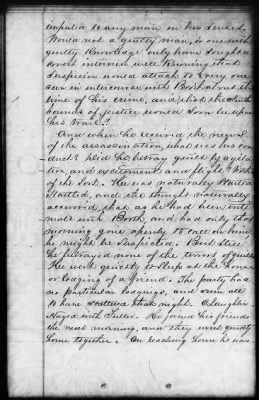 impute to any man in his senses.
Would not a guilty man, or one with
guilty knowledge only have sought a
covert interview well knowing that
suspicion would attach to every one
seen in intercourse with Booth about the
time of his crime, and that the sleuth
hounds of justice would soon be upon
his trail?
And when he received the news
of the assassination, what was his con-
duct? Did he betray guilt by agita-
tion, and excitement and flight? Nothing
of the sort. He was naturally
startled, and the thought naturally
occurred, that as he had been inti-
mate with Booth, and had only that
morning gone openly to call on him,
he might be suspected. But still
he betrayed none of the terrors of guilt.
He went quietly to sleep at the house
or lodging of a friend. The party had
no particular lodgings, and seem all
to have scattered that night. O'Laughlin
stayed with Fuller. He joined his friends
the next morning, and they went quietly
home together. On reaching home he was